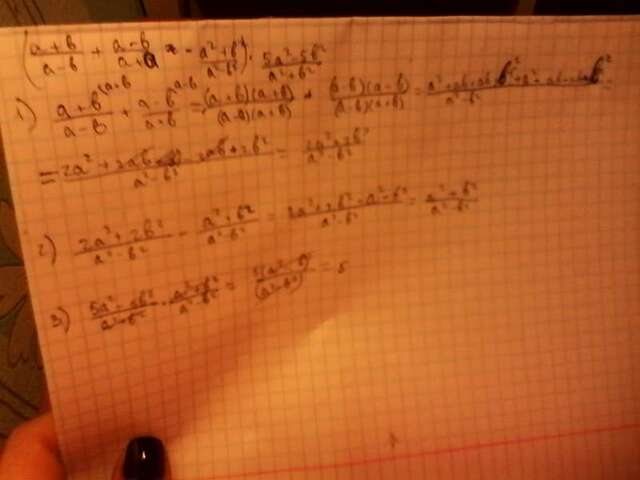 (a+b/a-b + a-b/a+b - a²+b²/a²-b²) · 5a²-5b²/a²+b²
1) a+b/a-b (a+b + a-b/a+b (a-b = (a+b)(a+b)/(a-b)(a+b) + (a-b)(a-b)/(a-b)(a+b) =
= 2a²+2b²/a²-b²
2) 2a²+2b²/a²-b² - a²+b²/a²-b² = 2a²+2b²-a²-b²/a²-b² = a²+b²/a²-b²
3) 5a²-5b²/a²+b² · a²+b²/a²-b² = 5(a²-b²)/(a²-b²) = 5